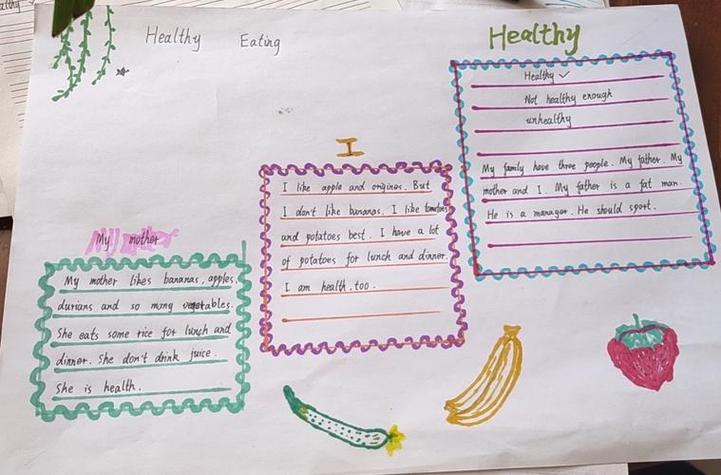 althy
Healthy Eating
Healthy
Healthy ✓
Not healthy enough
unhealthy
My family have three people. My father. My
mother and I. My father is a fat man.
He is a manager. He should sport.
I
I like apple and origines. But
I don't like bananas. I like tomatoes
and potatoes best. I have a lot
of potatoes for lunch and dinner.
I am health, too.
My mother
My mother likes bananas, apples,
durians and so many vegetables.
She eats some rice for lunch and
dinner. She don't drink juice.
She is health.